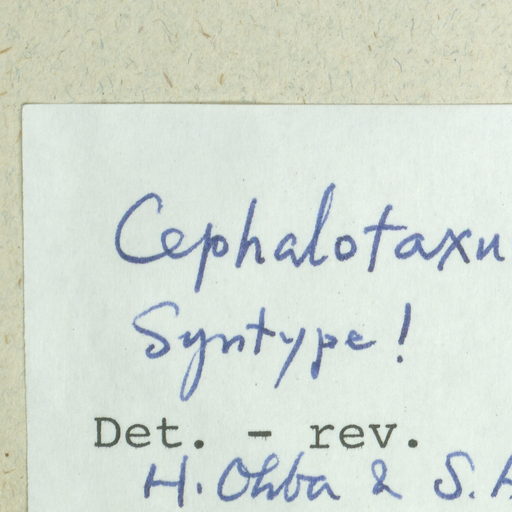 Cephalotaxu
Syntype!
Det. - rev.
H. Ohba & S.